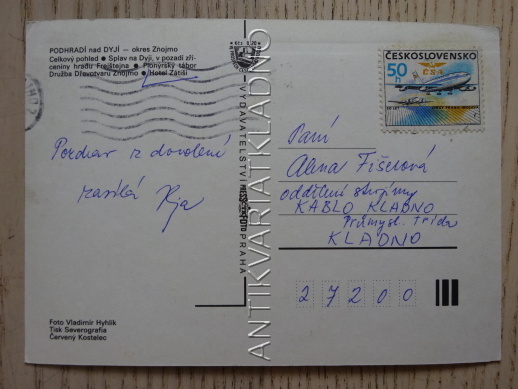 PODHRADÍ nad DYJÍ — okres Znojmo
Celkový pohled ● Splav na Dyji, v pozadí zří-
ceniny hradu Frejštejna ● Pionýrský tábor
Družba Dřevotvaru Znojmo ● Hotel Zátiší
Pozdrav z dovolené
zasílá
Foto Vladimír Hyhlík
Tisk Severografia
Červený Kostelec
VYDAVATELSTVÍ PRESSFOTO PRAHA
ANTIKVARIATKLADNO
ČESKOSLOVENSKO
50
h
ČSA
Paní
Alena Fišerová
oddělení strojírny
KABLO KLADNO
Průmysl. třída
KLADNO
27200